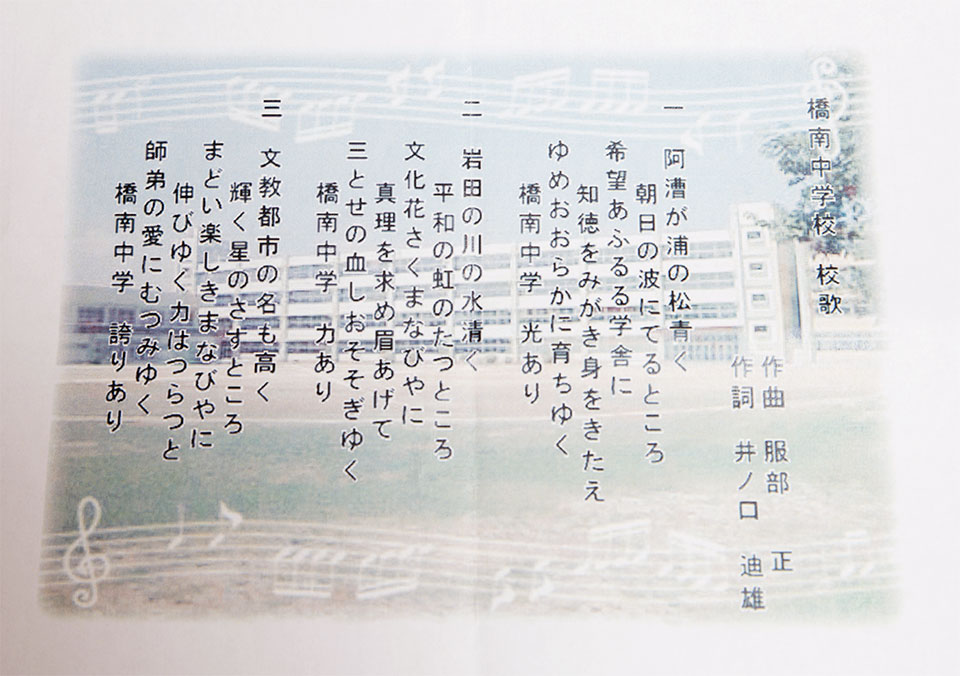 橋南中学校 校歌
作曲 服部 正
作詞 井ノ口 迪雄
一 阿漕が浦の松青く
朝日の波にてるところ
希望あふるる学舎に
知徳をみがき身をきたえ
ゆめおおらかに育ちゆく
橋南中学 光あり
二 岩田の川の水清く
平和の虹のたつところ
文化花さくまなびやに
真理を求め眉あげて
三とせの血しおそそぎゆく
橋南中学 力あり
三 文教都市の名も高く
輝く星のさすところ
まどい楽しきまなびやに
伸びゆく力はつらつと
師弟の愛にむつみゆく
橋南中学 誇りあり